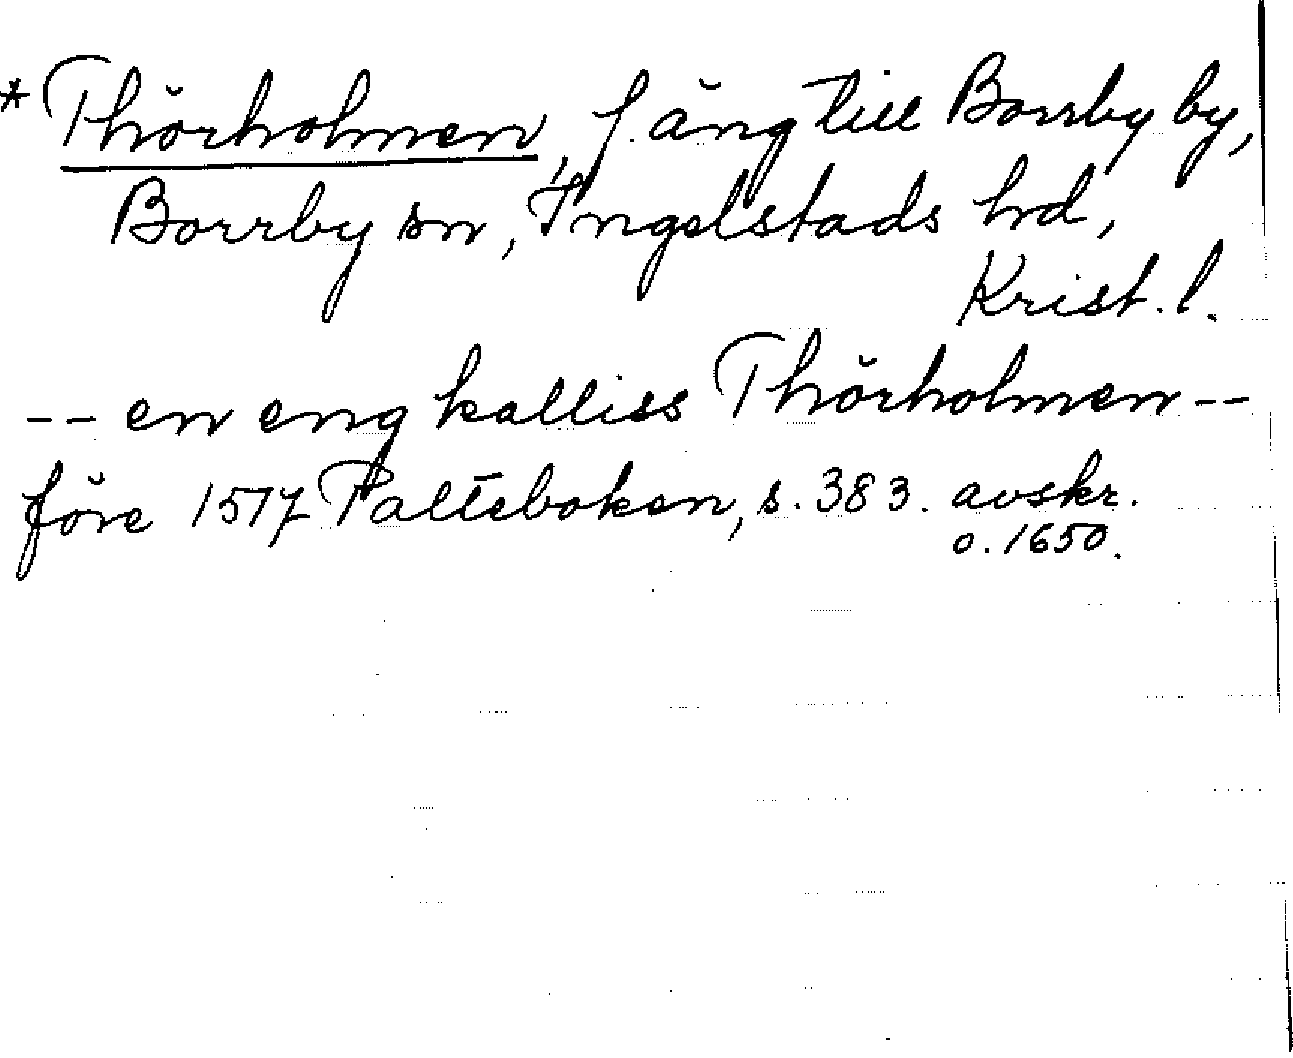 * Thörholmen, f. äng till Borrby by,
Borrby sn, Ingelstads hd,
Krist. l.
-- en eng kalliss Thörholmen --
före 1517 Palteboken, s. 383. avskr.
o. 1650.